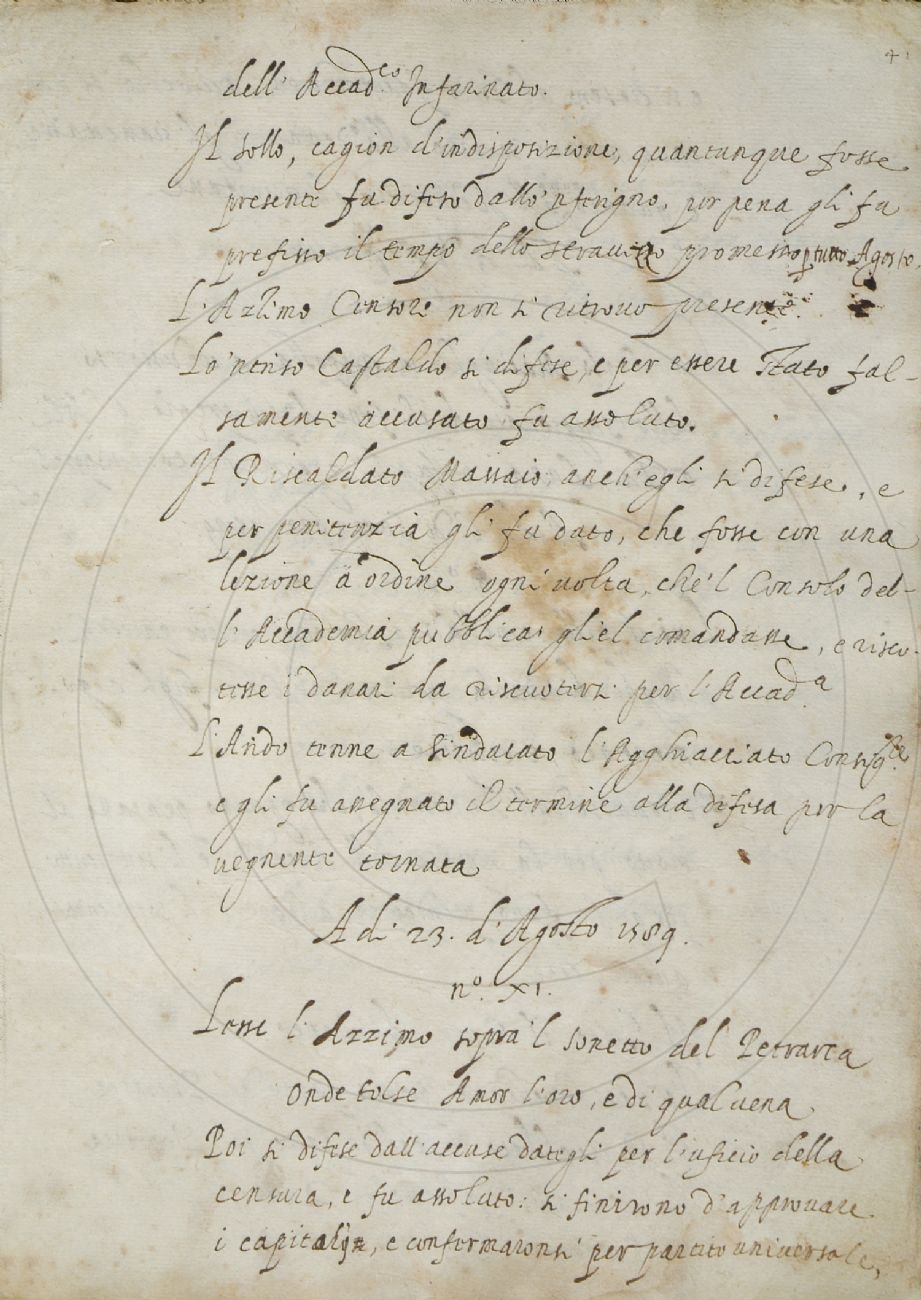 41
dell' Accad.co Infarinato.
Il sollo, cagion d'indisposizione, quantunque fosse
presente fu difeso dallo 'nferigno, per pena gli fu
prefisso il tempo dello stravizzo promesso p tutto Agosto.
L'Azzimo Censore non si ritrovo presente.
Lo 'ntriso Castaldo si difese, e per essere stato fal-
samente accusato fu assoluto.
Il Riscaldato Massaio, anch'egli si difese, e
per penitenzia gli fu dato, che fosse con una
lezione a ordine ogni volta, che 'l Consolo del-
l'Accademia pubblica gliel comandasse, e risco-
tesse i danari da riscuotersi per l'Accad.a
L'Arido tenne a sindacato l'Agghiacciato Consig.re
e gli fu assegnato il termine alla difesa per la
vegnente tornata
A di 23. d'Agosto 1589.
n.o XI.
Lesse l'Azzimo sopra 'l sonetto del Petrarca
Onde tolse Amor l'oro, e di qual vena
Poi si difese dall'accuse dategli per l'uficio della
censura, e fu assoluto: si finirono d'approvare
i capitoli, e confermaronsi per partito universale,